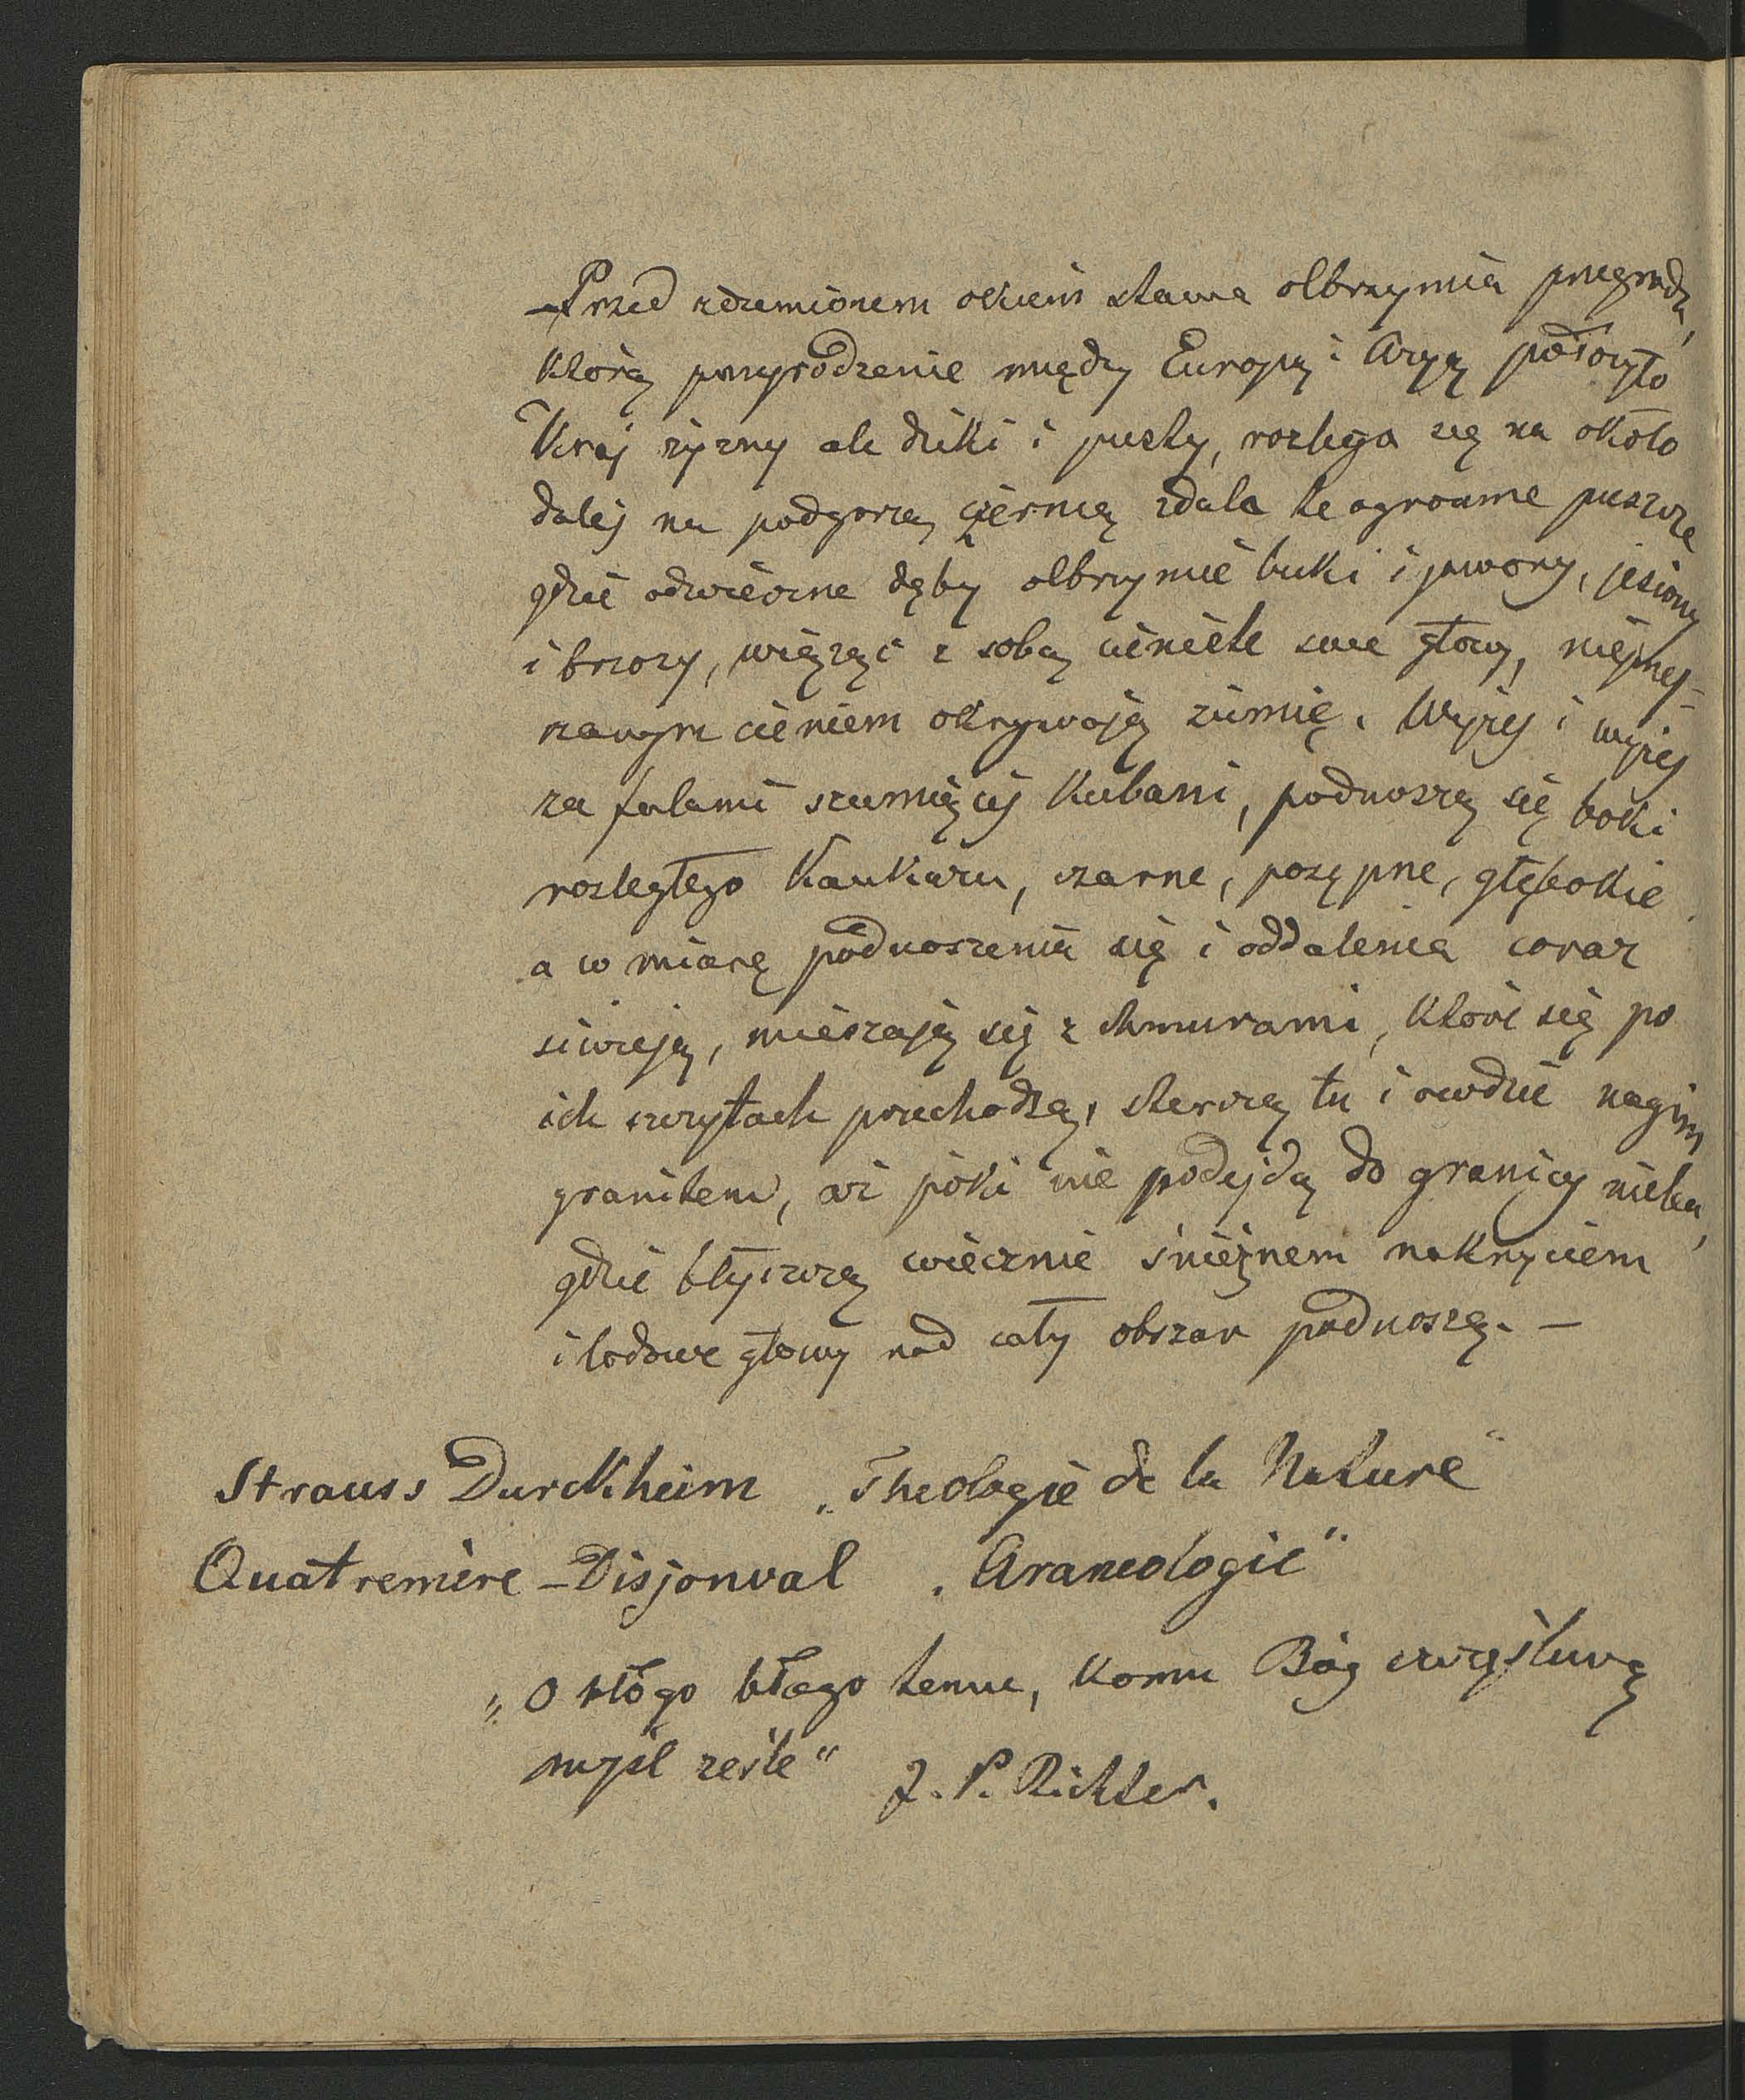 Przed zdumionem okiem stawa olbrzymia przegroda,
którą przyrodzenie między Europą i Azyą położyło
Kraj żyzny ale dziki i pusty, rozlega się na około
daléj na podgorzą czernią zdala te ogromne puszcze
gdzie odwieczne dęby olbrzymie buki i jawory, jesiony
i brzozy, wiążąc z sobą cieniste swe głowy, niéprzej-
rzanym cieniem okrywają ziemię. Wyżej i wyżej
za falami szumiącéj Kubani, podnoszą się boki
rozległego Kaukazu, czarne, posępne, głębokie
a w miarę podnoszenia się i oddalenia coraz
siwieją, mieszają się z chmurami, które się po
ich szczytach przechodzą, sterczą tu i owdzie nagim
granitem, aż póki nie podejdą do granicy nieba,
gdzie błyszczą wiecznie śnieżnem nakryciem
i lodowe głowy nad cały obszar podnoszą. —
Strauss Durckheim „Theologie de la Nature"
Quatremère-Disjonval „Araneologie"
„O błogo błogo temu, komu Bóg szczęśliwą
myśl ześle" J. P. Richter.